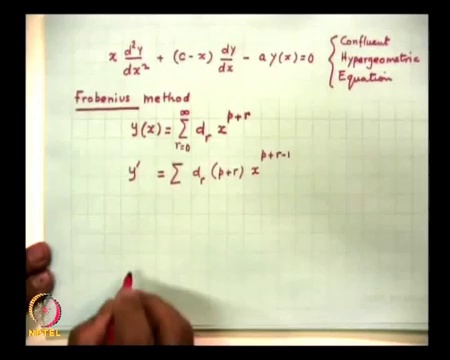 x d²y/dx² + (c-x) dy/dx - a y(x) = 0 { Confluent
Hypergeometric
Equation
Frobenius method
y(x) = ∑_{r=0}^{∞} d_r x^{p+r}
y' = ∑ d_r (p+r) x^{p+r-1}
NPTEL